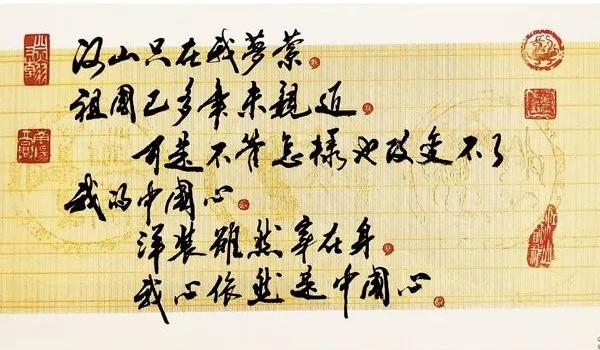 河山只在我夢萦
祖國已多年未親近
可是不管怎樣也改变不了
我的中國心
洋装雖然穿在身
我心依然是中國心